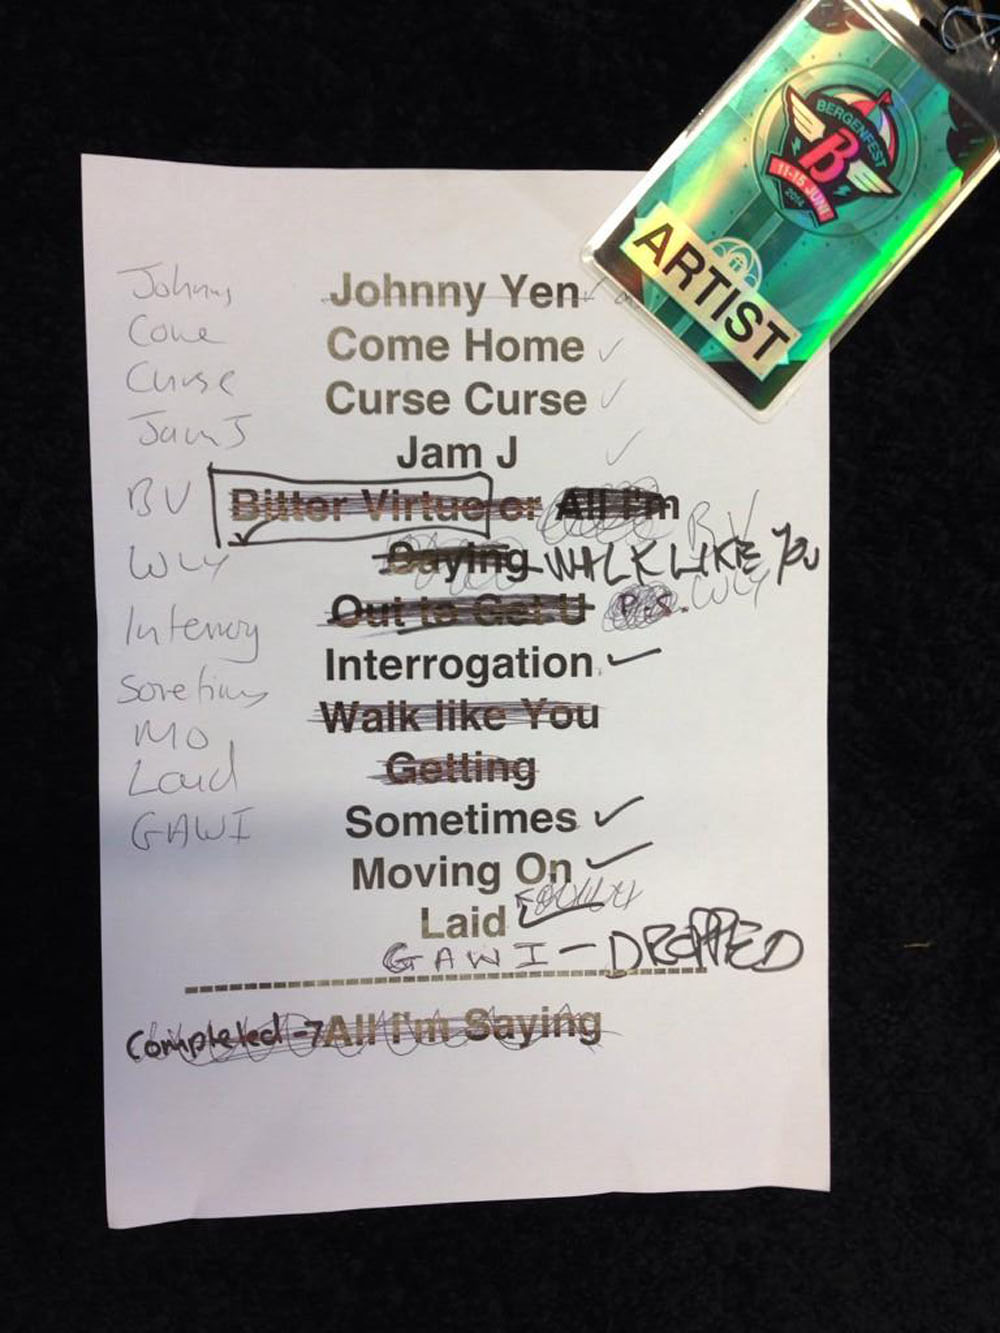 BERGENFEST
B
11-15 JUNI
2014
ARTIST
Johnny Johnny Yen
Come Come Home
Curse Curse Curse
Jam J Jam J
BV Bitter Virtue or All I'm BV
WLY Saying WALK LIKE YOU
Out to Get U P.S. WLY
Interrog Interrogation
Walk like You
Sometimes
Getting
MO
Laid
Sometimes
GAWI
Moving On
Laid
GAWI - DROPPED
Completed All I'm Saying